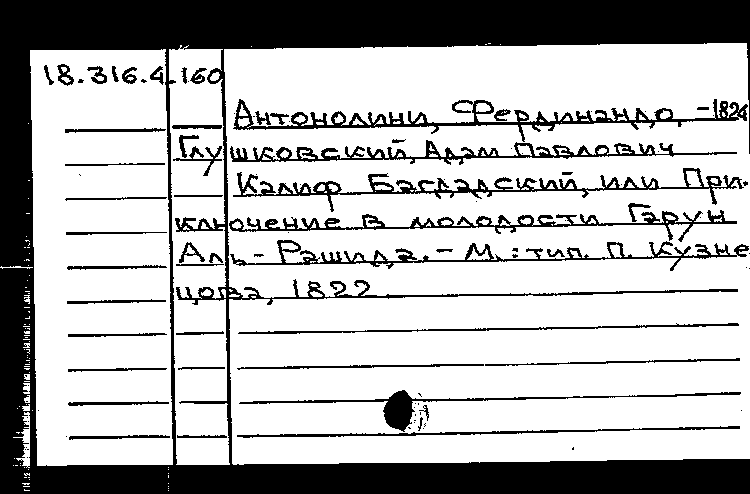 18.316.4.160
Антонолини, Фердинандо, -1824
Глушковский, Адам Павлович
Калиф Багдадский, или При-
ключение в молодости Гарун
Аль-Рашида. - М.: тип. П. Кузне
цова, 1822